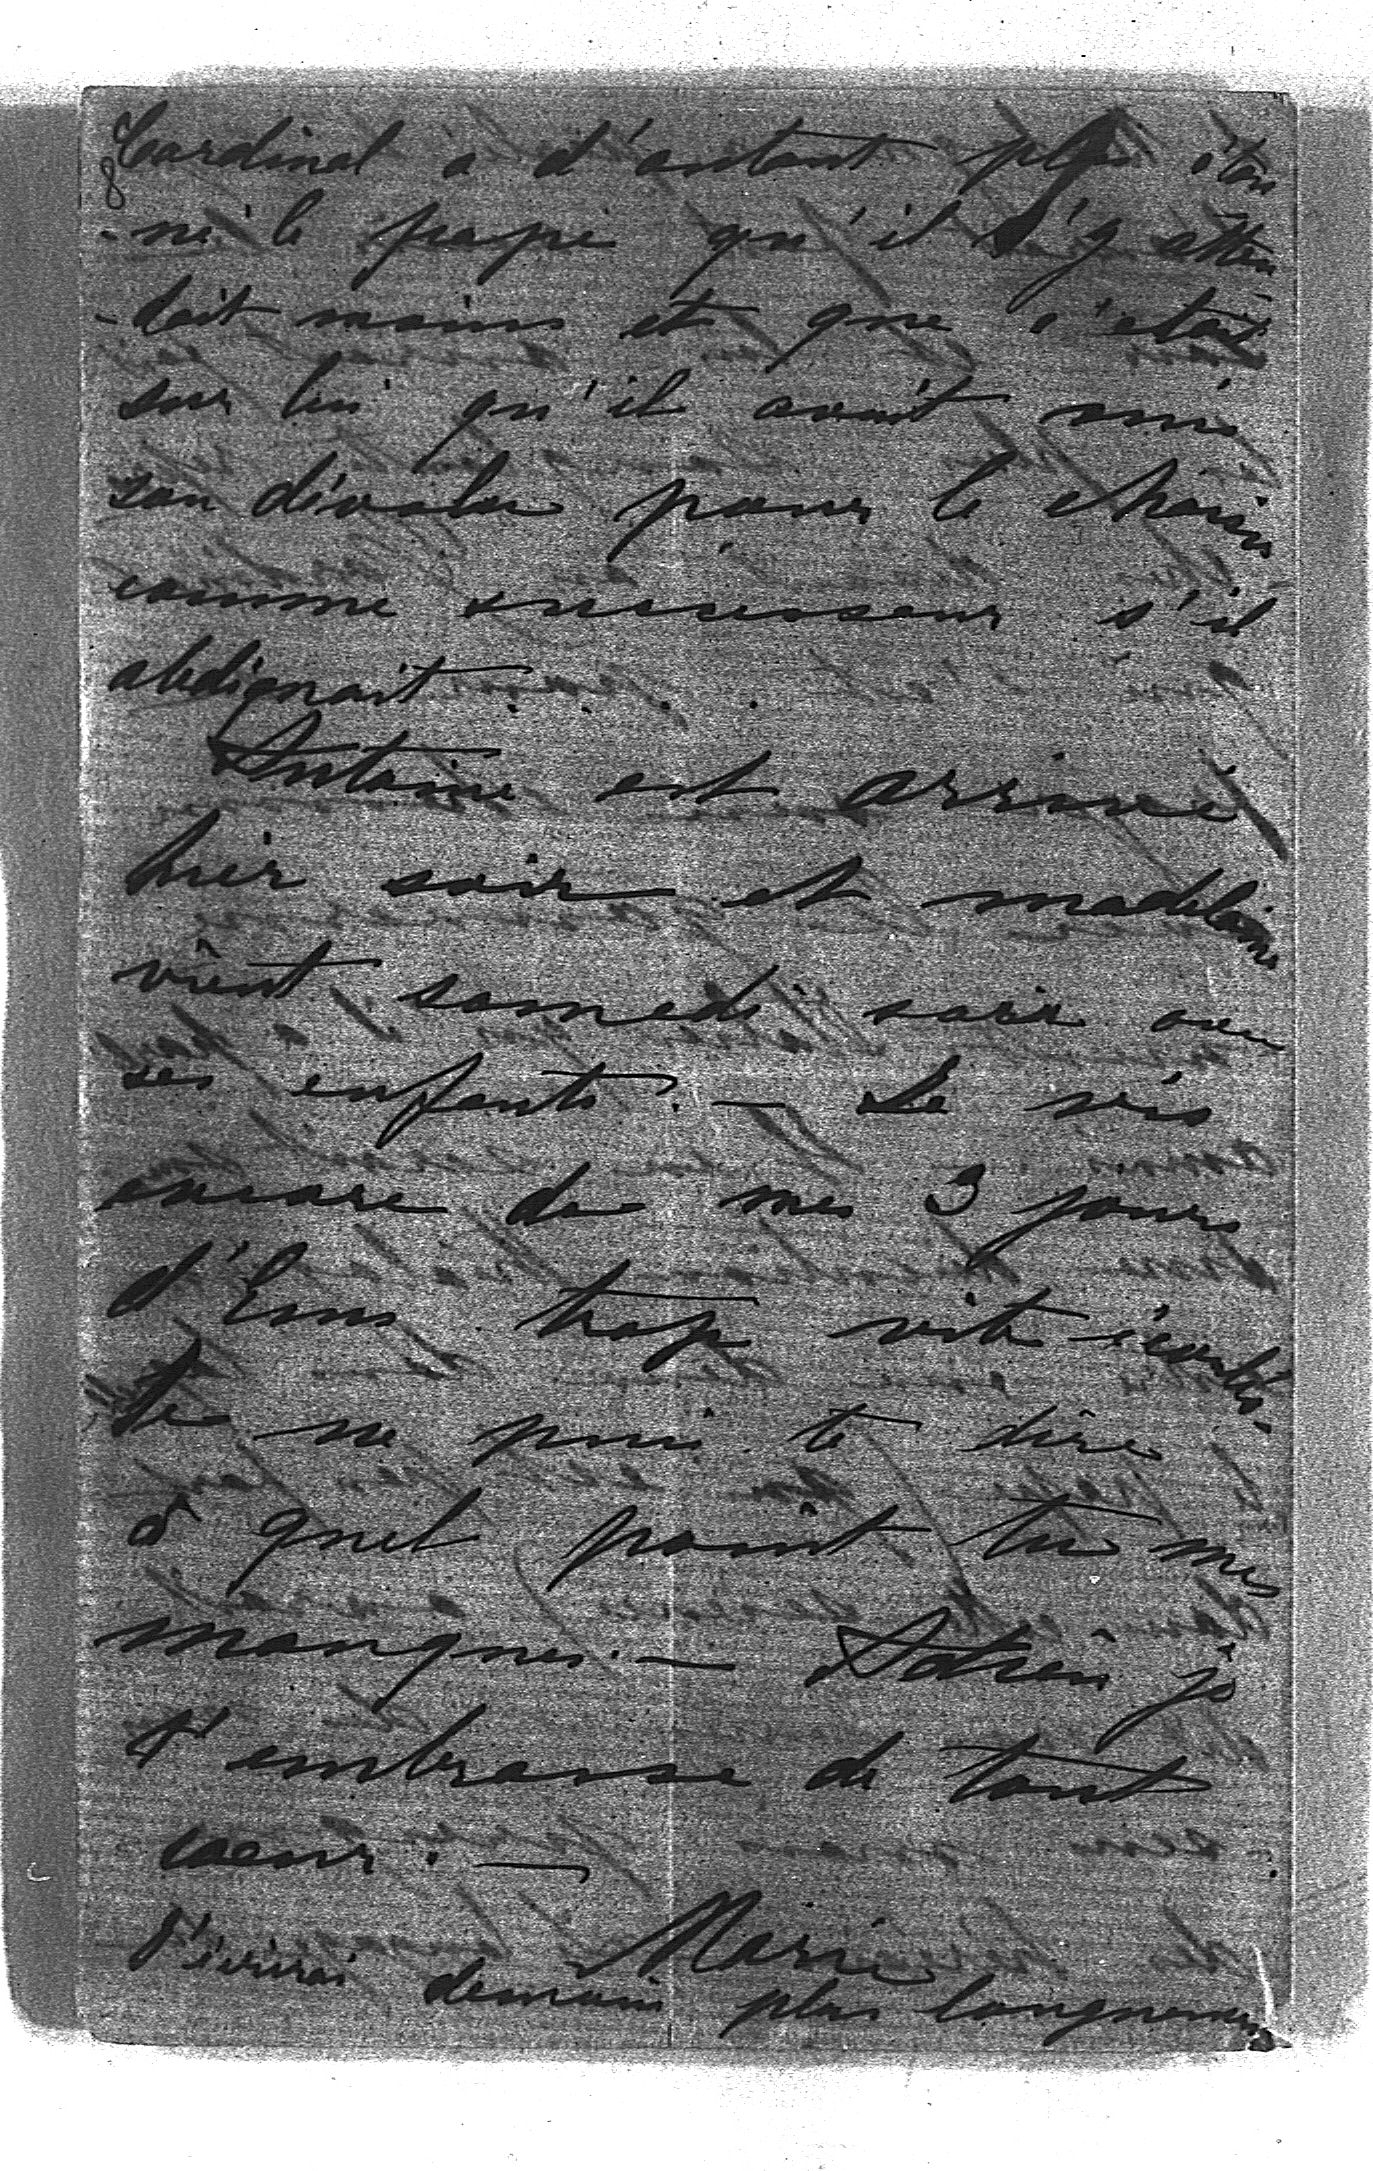 8
Cardinal a d'autant plus éton
-né le pape qu'il s'y atten
-dait moins et que c'était
sur lui qu'il avait mis
son dévolu pour le choisir
comme successeur s'il
abdiquait . . . .
Antoine est arrivé
hier soir et Madeleine
vient samedi soir avec
ses enfants. — Je vis
encore de mes 3 jours
d'Ems trop vite écoulés.
Je ne puis te dire
à quel point tu me
manques. — Adieu je
t'embrasse de tout
cœur. —
Marie
J'écrirai demain plus longuement